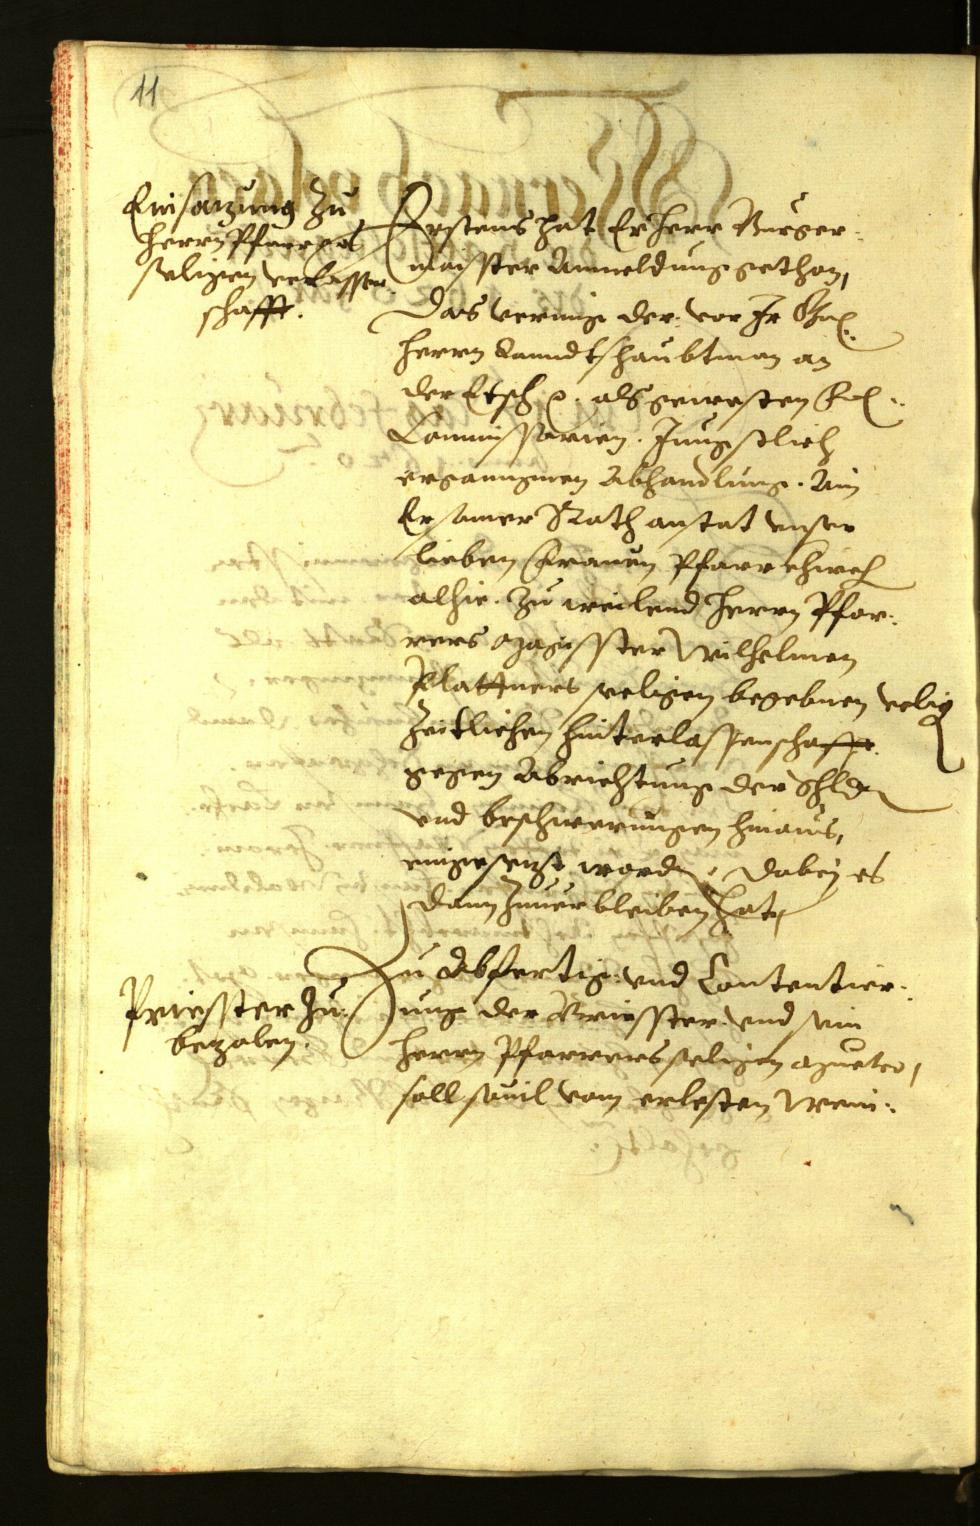 11
Einsatzung zu
herrn Pfarrers
seligen verlassen-
schafft.
Erstens hat Er herr Burger-
maisster Anmeldung gethan,
Das vermüg der vor Ir Gn:
herrn Lanndtshaubtman an
der Etsch etc. als gewesten
Commissarien. Jungstlich
erganngnen Abhandlung. Ain
Ersamer Rath anstat unser
lieben Frauen Pfarrkhirch
alhie. Zu weilend herrn Pfar-
rers Magisster Wilhelmen
Plattners seligen begebnen
Zeitlichen hinterlassenschafft
gegen Abrichtung der Schlde
und beschwerungen hinaus,
eingesezt worden. dabey es
dann Zuuerbleiben hat,
Priesster zu
bezalen.
Zu Abfertig: und Contentier-
ung der Briesster und sein
herrn Pfarrers seligen
soll souil vom erlesten Wein: